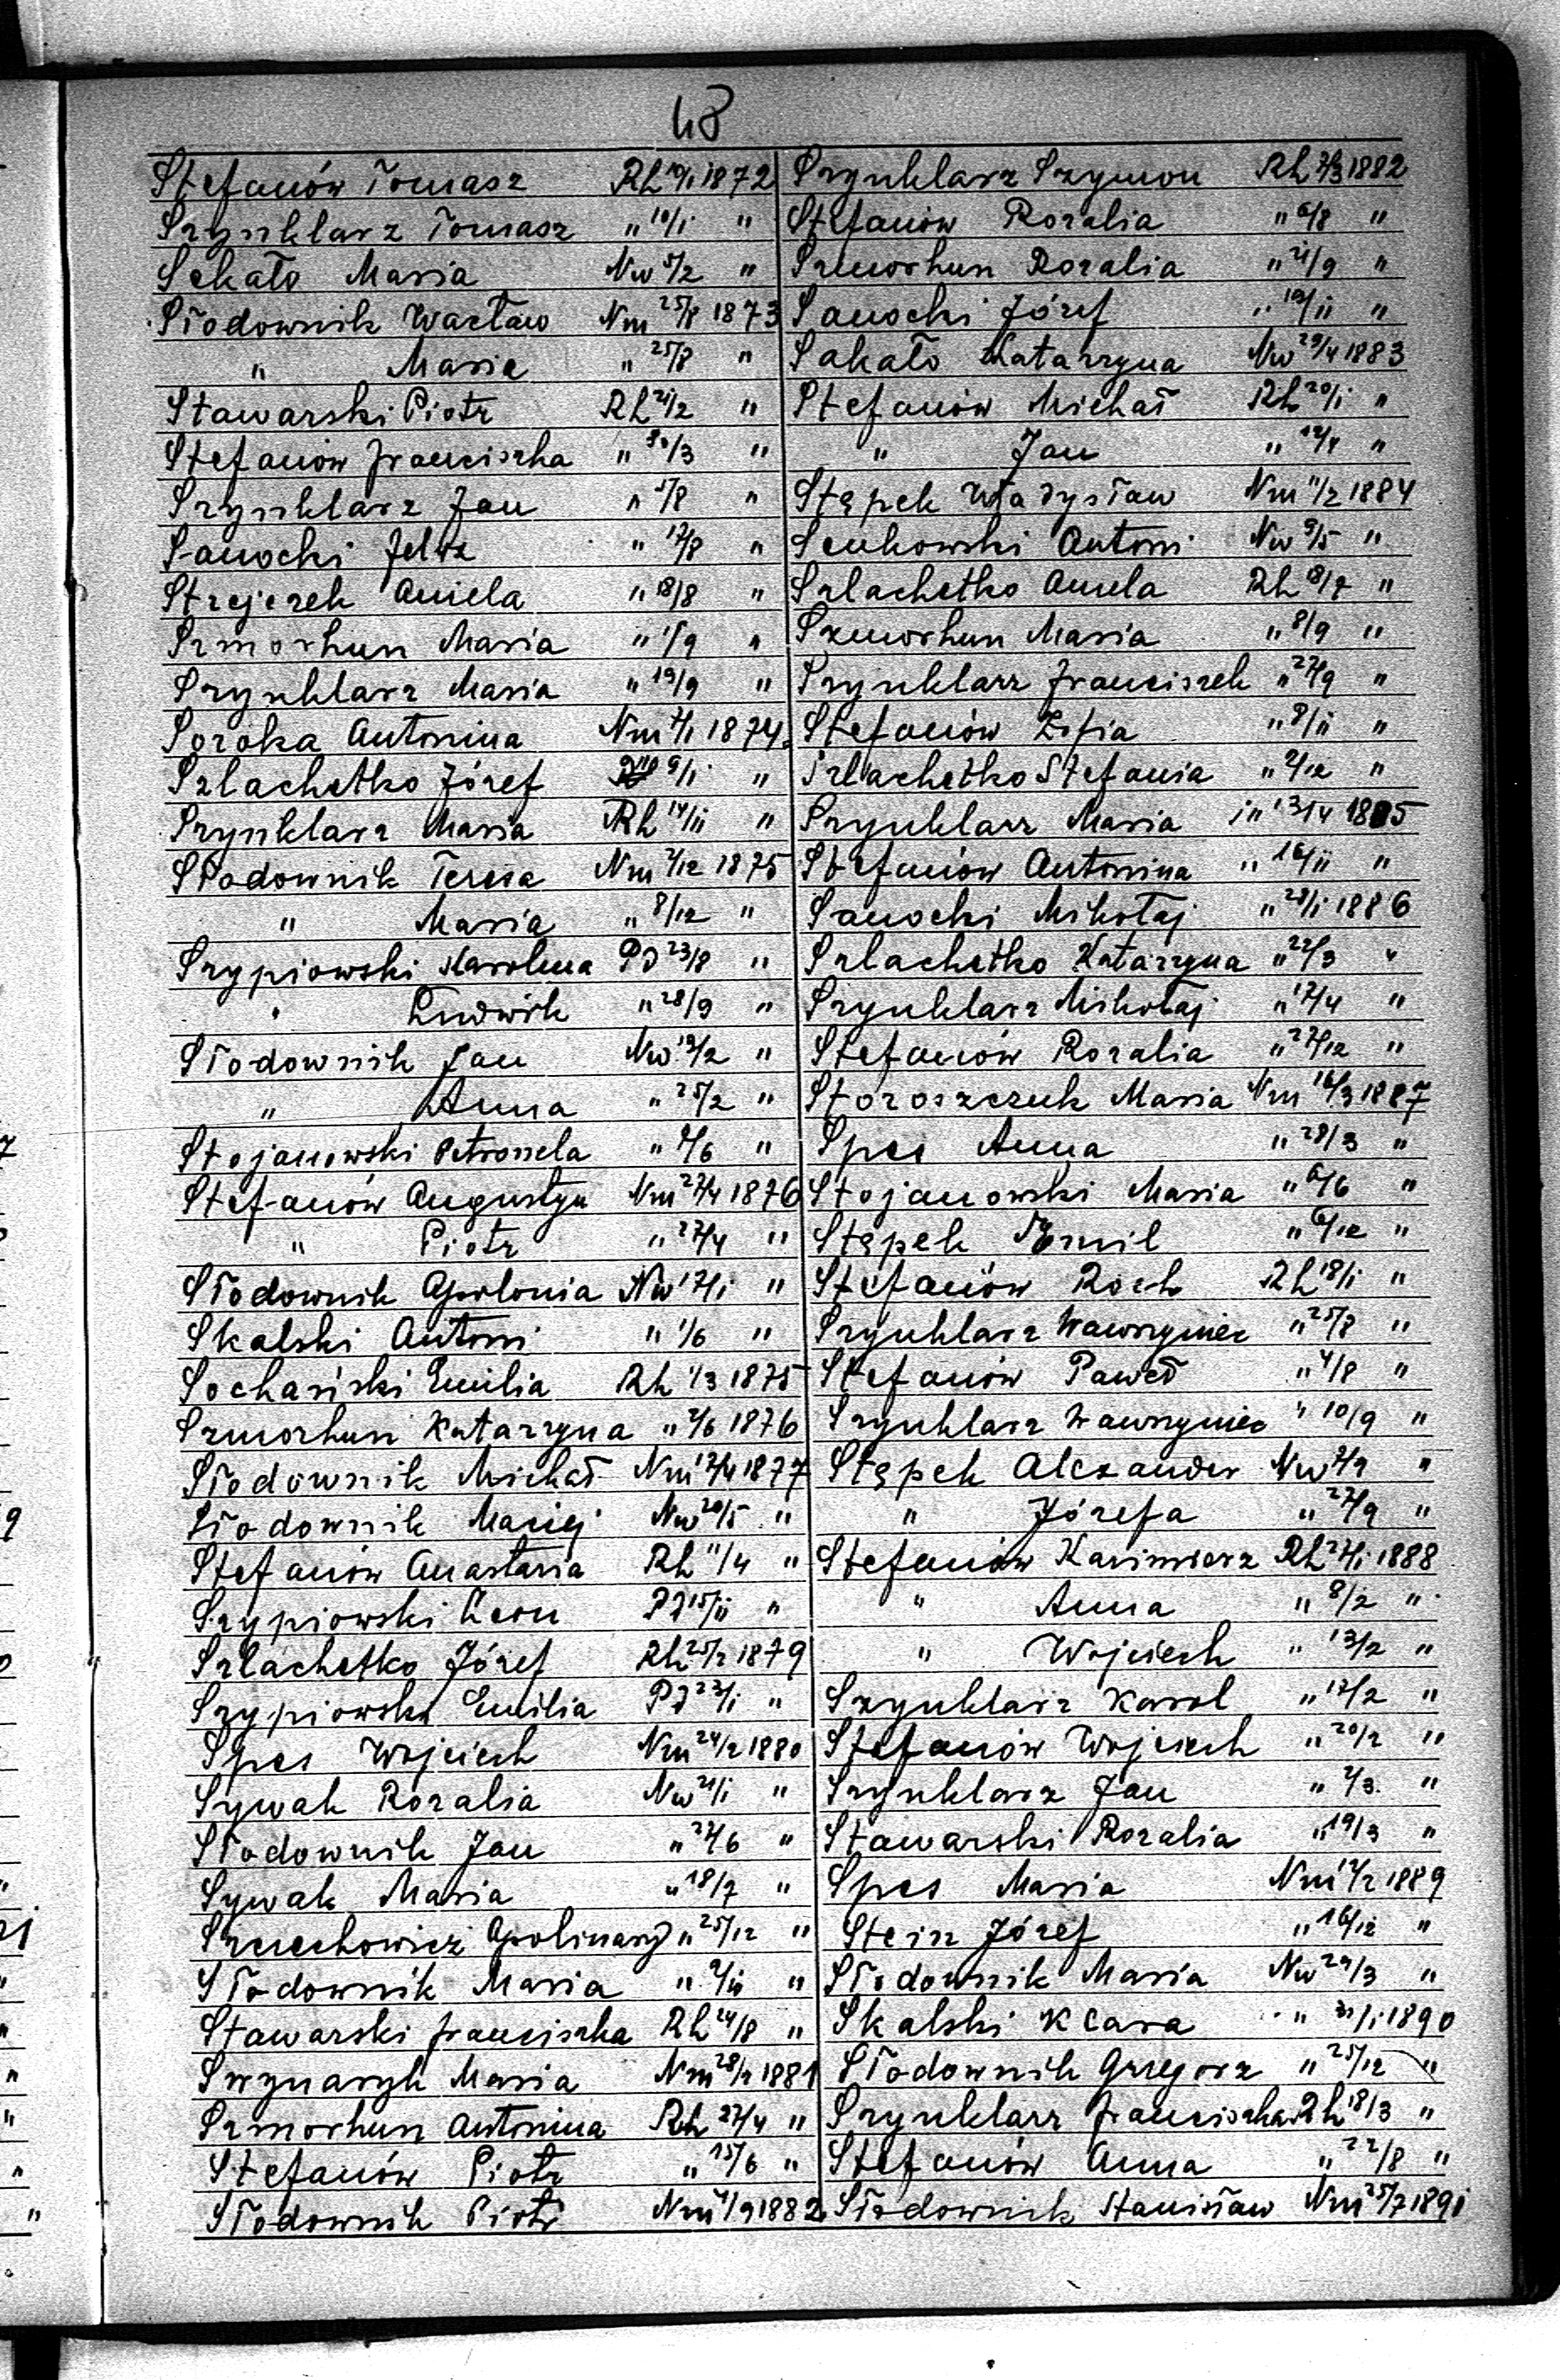 48
Stefanów Tomasz Rh 10/1 1872
Szynklarz Tomasz " 10/1 "
Sekało Maria Nw 5/2 "
Słodownik Wacław Nm 25/8 1873
" Maria " 25/8 "
Stawarski Piotr Rh 21/2 "
Stefanów Franciszka " 30/3 "
Szynklarz Jan " 5/8 "
Sanocki " 17/8 "
Strejczek Aniela " 18/8 "
Szmorhun Maria " /9 "
Szynklarz Maria " 19/9 "
Soroka Antonina Nm 1874
Szlachetko Józef 9/1 "
Szynklarz Maria Rh 14/11 "
Słodownik Teresa Nm 7/12 1875
" Maria " 8/12 "
Szypiowski Karolina Pd 23/8 "
" Ludwik " 28/9 "
Słodownik Jan Nw 13/2 "
" Anna " 25/2 "
Stojanowski Petronela " /6 "
Stefanów Augustyn Nm 27/4 1876
" Piotr " 27/4 "
Słodownik Apolonia Nw 17/1 "
Skalski Antoni " 1/6 "
Sochasiski Emilia Rh 1/3 1875
Szmorhun Katarzyna " 2/6 1876
Słodownik Michał Nm 12/4 1877
Słodownik Maciej Nw 20/5 "
Stefanów Anastazia Rh 11/4 "
Szypiowski Leon Pd 15/11 "
Szlachetko Józef Rh 25/2 1879
Szypiowski Emilia Pd 22/1 "
Spes Wojciech Nm 24/2 1880
Sywak Rozalia Nw 21/1 "
Słodownik Jan " 22/6 "
Sywak Maria " 18/7 "
Szuchowicz Apolinary " 25/12 "
Słodownik Maria " "
Stawarski Franciszka Rh 24/8 "
Swynaryk Maria Nm 28/2 1881
Szmorhun Antonina Rh 27/4 "
Stefanów Piotr " 15/6 "
Słodownik Piotr Nm /9 1882
Szynklarz Szymon Rh 1882
Stefanów Rozalia " 6/8 "
Szmorhun Rozalia " 21/9 "
Sanocki Józef " 10/11 "
Sakało Katarzyna Nw 29/4 1883
Stefanów Michał Rh 20/1 "
" Jan " 12/4 "
Stąpek Władysław Nm 11/2 1884
Senkowski Antoni Nw 9/5 "
Szlachetko Aniela Rh 18/7 "
Szmorhun Maria " 8/9 "
Szynklarz Franciszek " 27/9 "
Stefanów Zofia " 8/11 "
Szlachetko Stefania " 2/12 "
Szynklarz Maria " 13/4 1885
Stefanów Antonina " 16/11 "
Sanocki Mikołaj " 28/1 1886
Szlachetko Katarzyna " 22/3 "
Szynklarz Mikołaj " 17/4 "
Stefanów Rozalia " 27/12 "
Storoszczuk Maria Nm 16/3 1887
Spes Anna " 28/3 "
Stojanowski Maria " 6/6 "
Stąpek Emil " 6/12 "
Stefanów Roch Rh 18/1 "
Szynklarz Wawrzyniec " 25/8 "
Stefanów Paweł " 4/8 "
Szynklarz Wawrzyniec " 10/9 "
Stąpek Alexander Nw "
" Józefa " 27/9 "
Stefanów Kazimierz Rh 27/1 1888
" Anna " 8/2 "
" Wojciech " 13/2 "
Szynklarz Karol " 17/2 "
Stefanów Wojciech " 20/2 "
Szynklarz Jan " 2/3 "
Stawarski Rozalia " 19/3 "
Spes Maria Nm 1889
Stein Józef " 16/12 "
Słodownik Maria Nw 29/3 "
Skalski Klara " 31/1 1890
Słodownik Grzegorz " 25/12 "
Szynklarz Franciszka Rh 18/3 "
Stefanów Anna " 22/8 "
Słodownik Stanisław Nm 25/7 1891